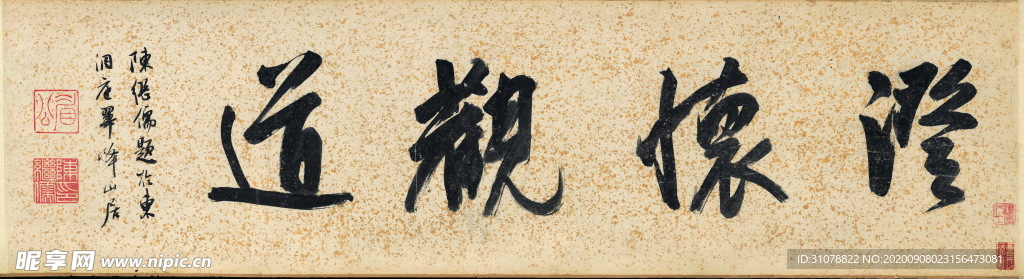 澄懷觀道
陳繼儒題於東
洞庭翠峰山居
眉公
陳繼儒印
昵享网 www.nipic.cn
ID:31078822 NO:20200908023156473081